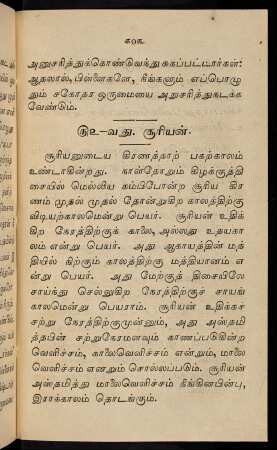 ௧௦௧
அனுசரித்துக்கொண்டுவந்து சுகப்பட்டார்கள்:
ஆதலால், பிள்ளைகளே, நீங்களும் எப்பொழு
தும் சகோதா ஒருமையை அநுசரித்துநடக்க
வேண்டும்.
௫௨-வது. சூரியன்.
சூரியனுடைய கிரணத்தாற் பகற்காலம்
உண்டாகின்றது. நாள்தோறும் கிழக்குத்தி
சையில் மெல்லிய கம்பிபோன்ற சூரிய கிர
ணம் முதல் முதல் தோன்றுகிற காலத்திற்கு
விடியற்காலமென்று பெயர். சூரியன் உதிக்
கிற நேரத்திற்குக் காலை, அல்லது உதயகா
லம் என்று பெயர். அது ஆகாயத்தின் மத்
தியில் நிற்கும் காலத்திற்கு மத்தியானம் எ
ன்று பெயர். அது மேற்குத் திசையிலே
சாய்ந்து செல்லுகிற நேரத்திற்குச் சாயங்
காலமென்று பெயராம். சூரியன் உதிக்கச்
சற்று நேரத்திற்குமுன்னும், அது அஸ்தமி
த்தபின் சற்றுநேரமளவும் காணப்படுகின்ற
வெளிச்சம், காலைவெளிச்சம் என்றும், மாலை
வெளிச்சம் எனறும் சொல்லப்படும். சூரியன்
அஸ்தமித்து மாலைவெளிச்சம் நீங்கினபின்பு,
இராக்காலம் தொடங்கும்.